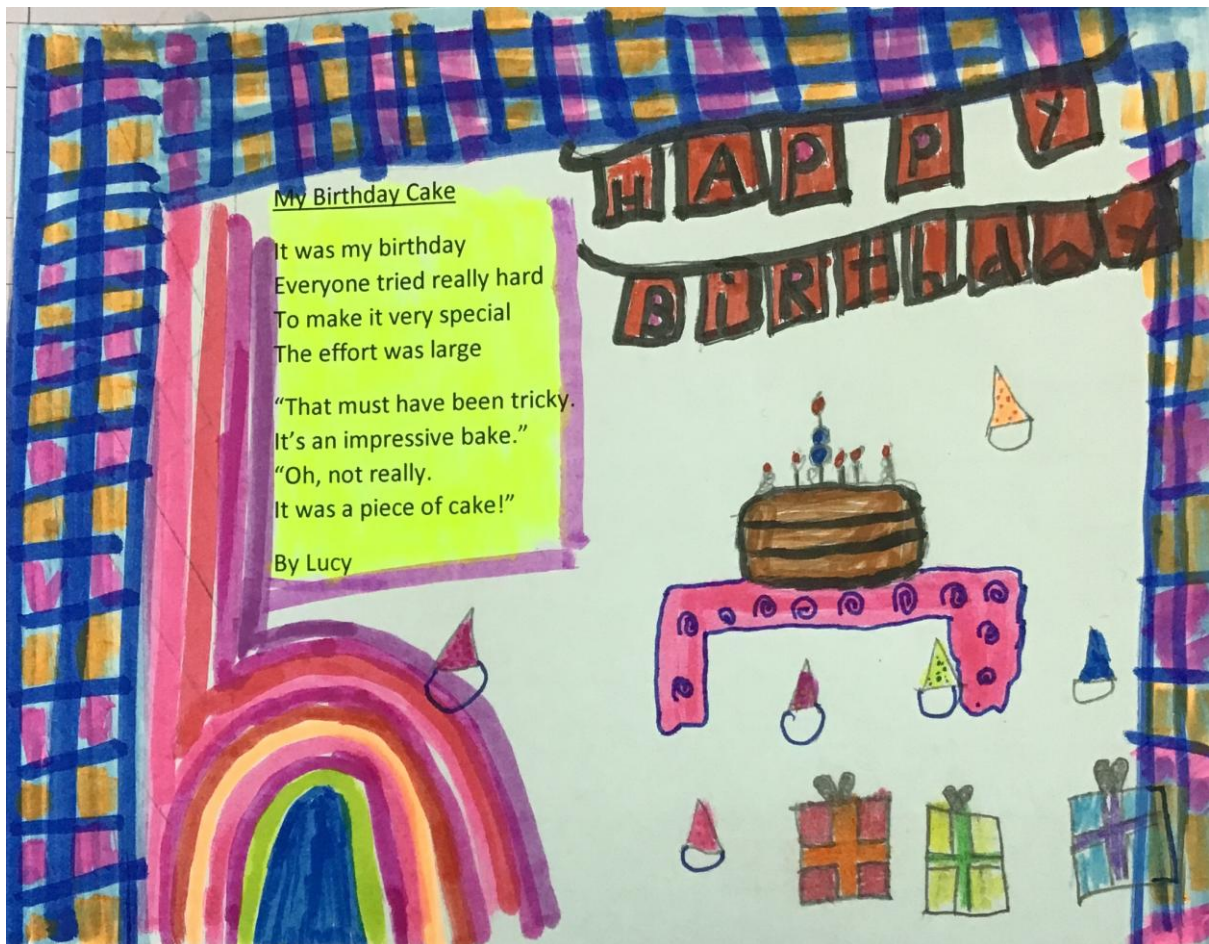 My Birthday Cake
It was my birthday
Everyone tried really hard
To make it very special
The effort was large
“That must have been tricky.
It’s an impressive bake.”
“Oh, not really.
It was a piece of cake!”
By Lucy
HAPPY
BiRthday